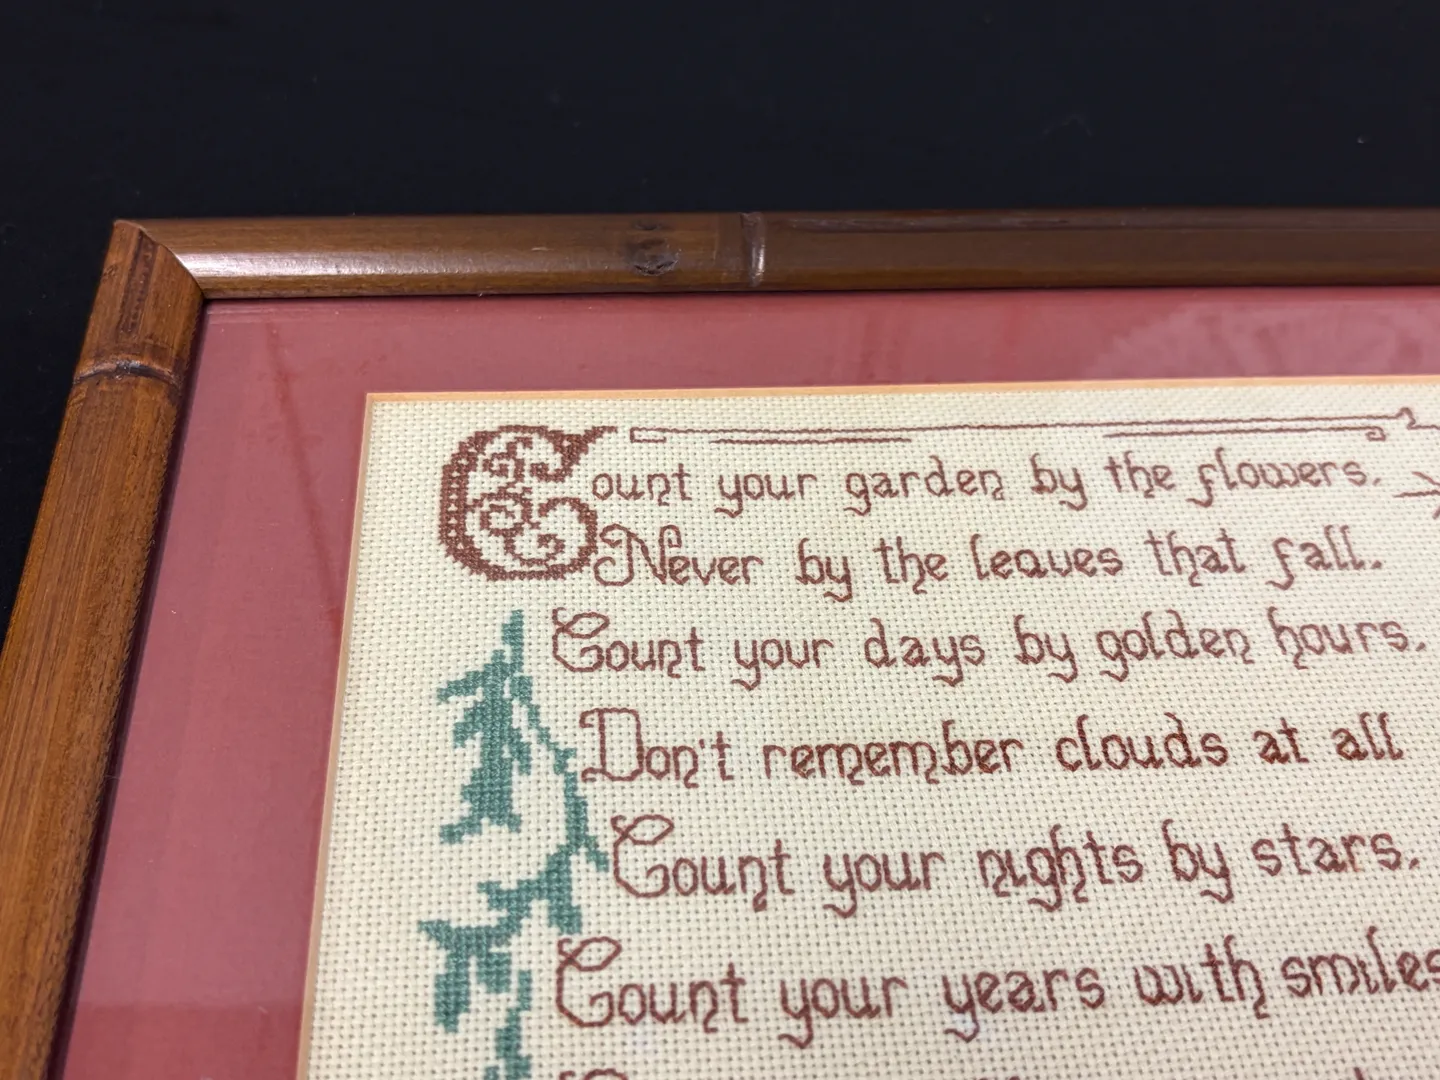 Count your garden by the flowers.
Never by the leaves that fall.
Count your days by golden hours.
Don't remember clouds at all
Count your nights by stars.
Count your years with smiles